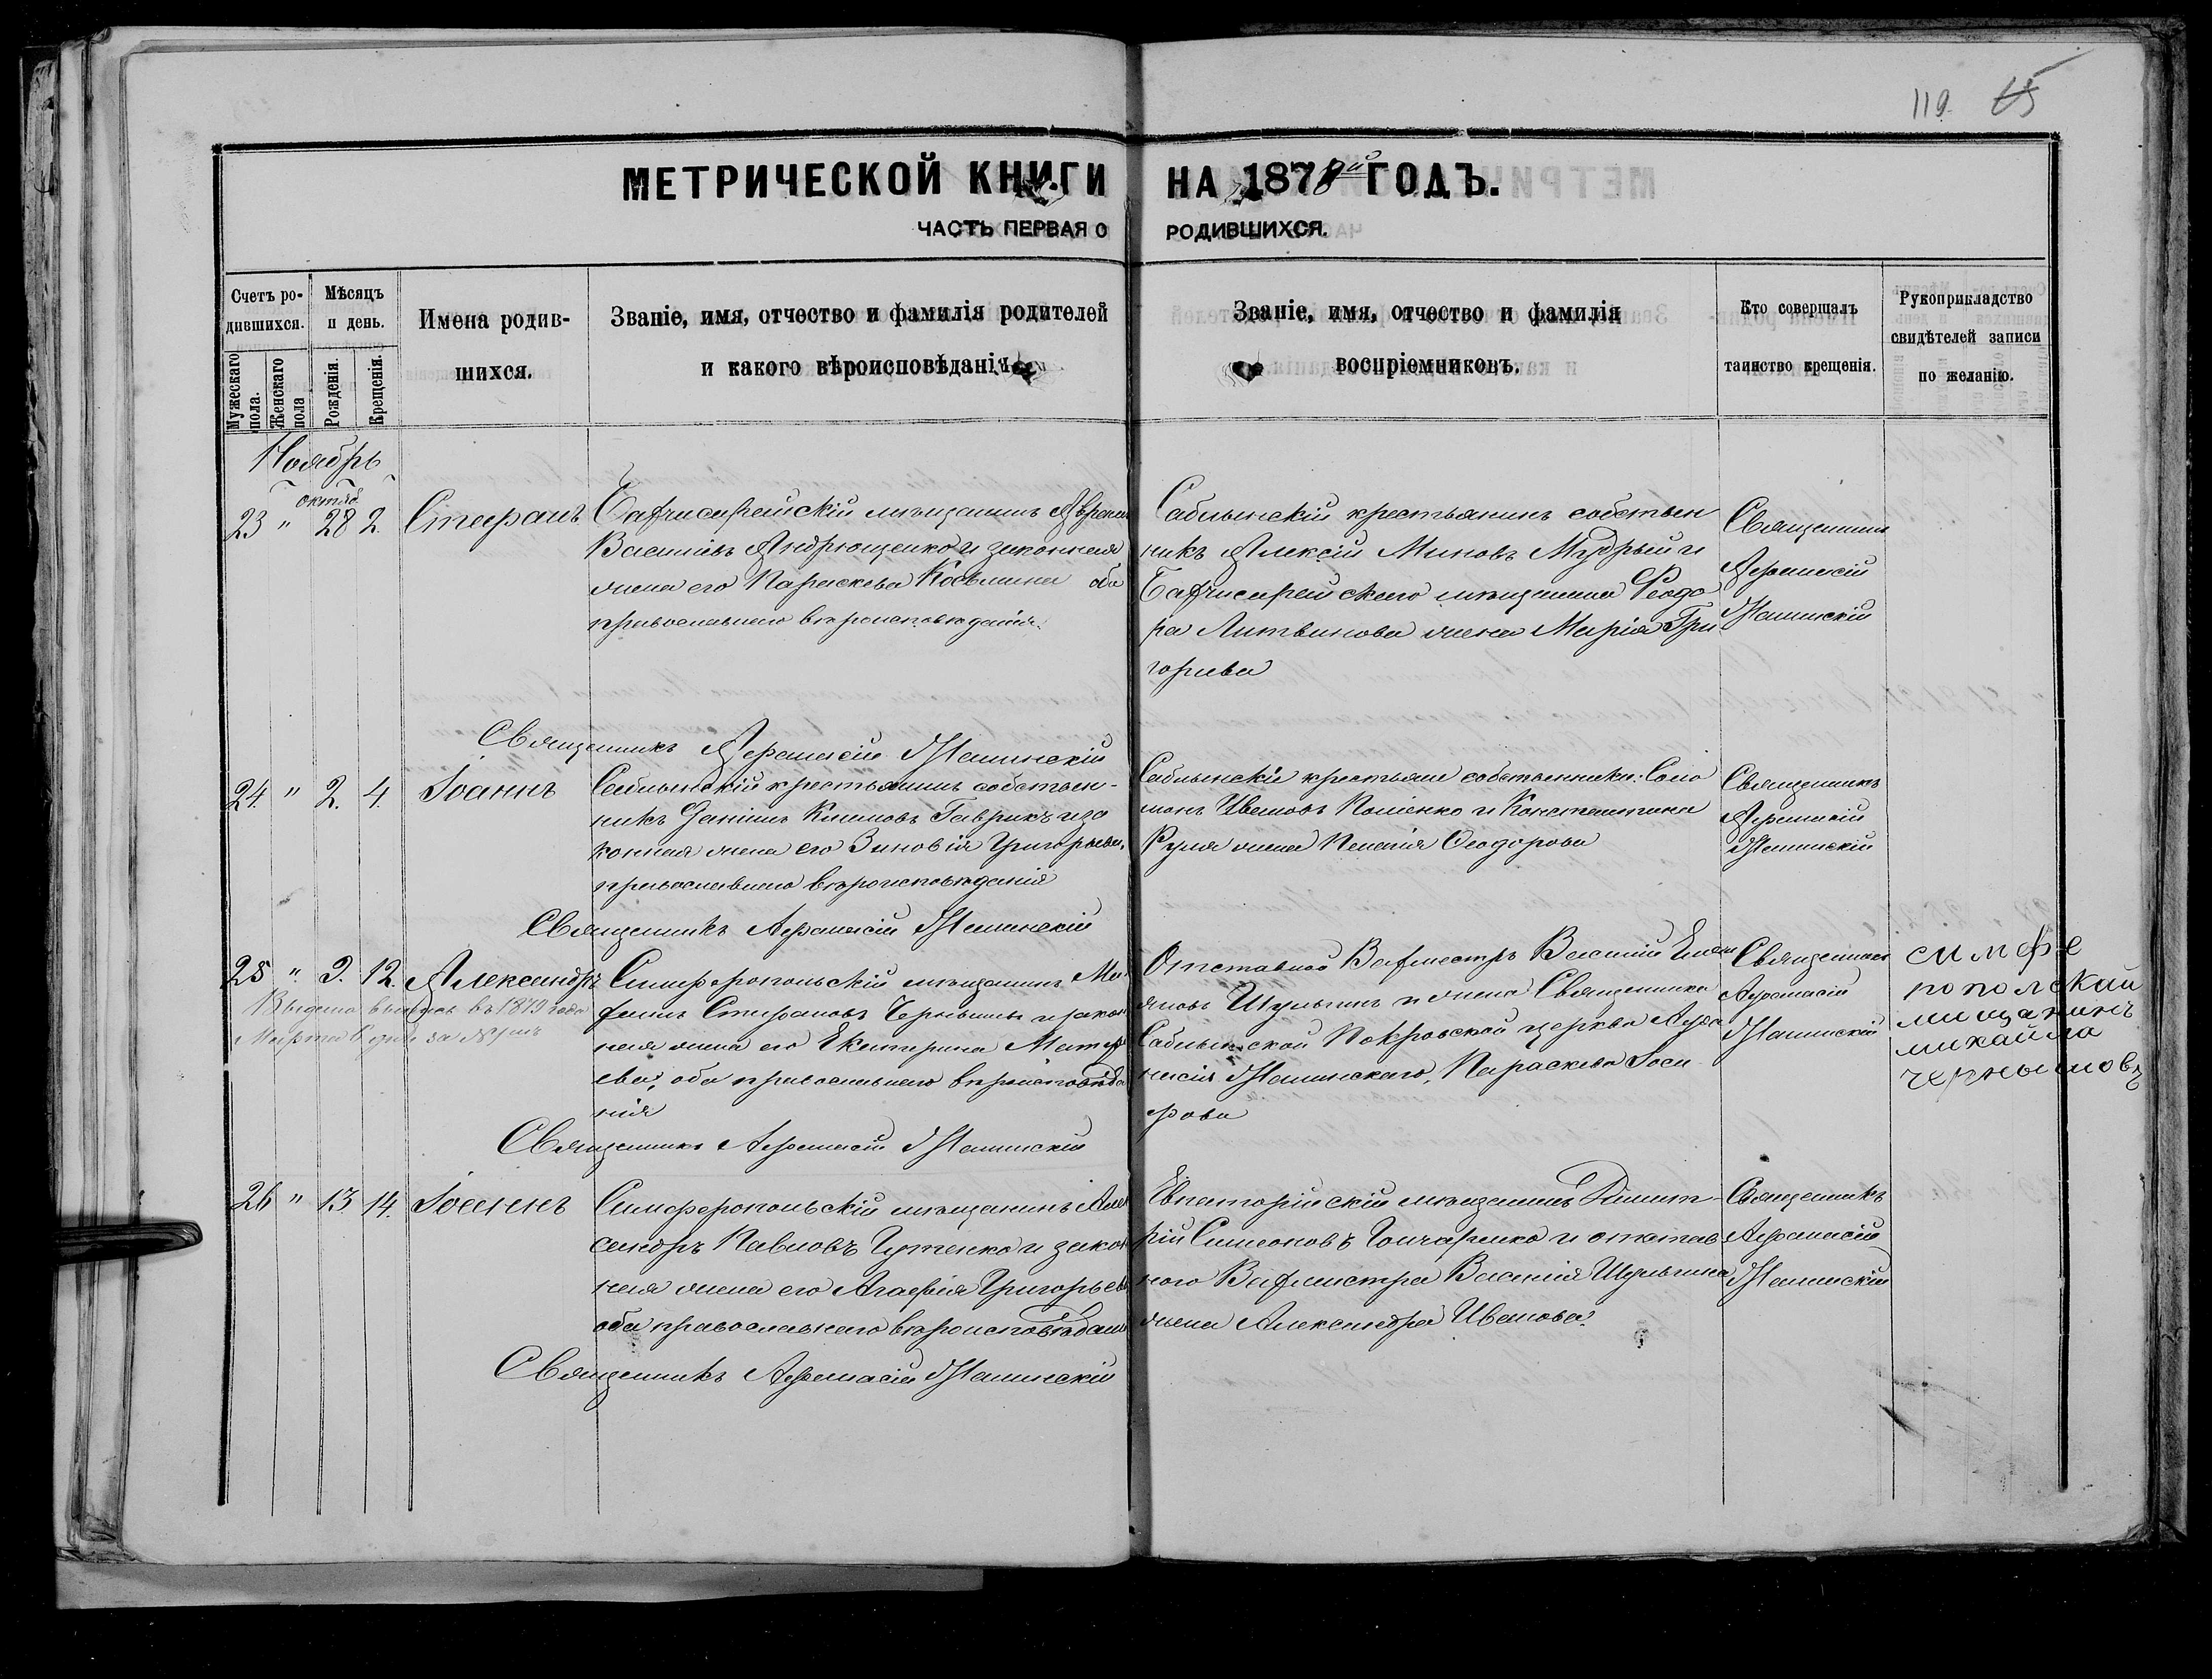 119. 65
МЕТРИЧЕСКОЙ КНИГИ НА 1878й ГОДЪ.
ЧАСТЬ ПЕРВАЯ О РОДИВШИХСЯ.
Счетъ ро-
дившихся.
Мужескаго пола.
Женскаго пола
Мѣсяцъ
и день.
Рожденія.
Крещенія.
Имена родив-
шихся.
Званіе, имя, отчество и фамилія родителей
и какого вѣроисповѣданія.
Званіе, имя, отчество и фамилія
воспріемниковъ.
Кто совершалъ
таинство крещенія.
Рукоприкладство
свидѣтелей записи
по желанію.
Ноябрь
октяб
23 " 28 2. Стефанъ
Бахчисарайскій мѣщанинъ
Василіевъ Андрющенко и законная
жена его Параскева Косьмина оба
православнаго вѣроисповѣданія.
Сабльинскій крестьянинъ собствен
никъ Алексій Миновъ Мудрый и
Бахчисарайскаго мѣщанина Феодо
ра Литвинова жена Марія Гри
горьева
Священникъ
Афанасій
Священникъ Афанасій
24. " 2. 4. Іоаннъ
Сабльинскій крестьянинъ собствен-
никъ Даніилъ Климовъ Гаврикъ и за
конная жена его Зиновія Григорьева,
православнаго вѣроисповѣданія
Сабльинскіе крестьяне собственники: Соло
монъ Ивановъ и Константина
жена Пелагія Феодорова
Священникъ
Афанасій
Священникъ Афанасій
25 " 9. 12. Александръ
Выдана выпись въ 1879 года
Марта 6 дня за №
Симферопольскій мѣщанинъ Ми-
хаилъ Стефановъ Чернышевъ и закон
ная жена его Екатерина Матфе
ева, оба православнаго вѣроисповѣда
нія
Отставной Вахмистръ Василій Емель
яновъ Шульгинъ и жена Священника
Сабльинской Покровской церкви Афа
насія Параскева Іоси
фова
Священникъ
Афанасій
симфе
ропольскай
мищанинъ
михайла
чернышовъ
Священникъ Афанасій
26 " 13. 14. Іоаннъ
Симферопольскій мѣщанинъ Алек
сандръ Павловъ Гутенко и закон
ная жена его Агафія Григорьева
оба православнаго вѣроисповѣдан
Евпаторійскій мѣщанинъ Димит-
рій Симеоновъ Гончаренко и отстав
ного Вахмистра Василія Шульгина
жена Александра Иванова.
Священникъ
Афанасій
Священникъ Афанасій